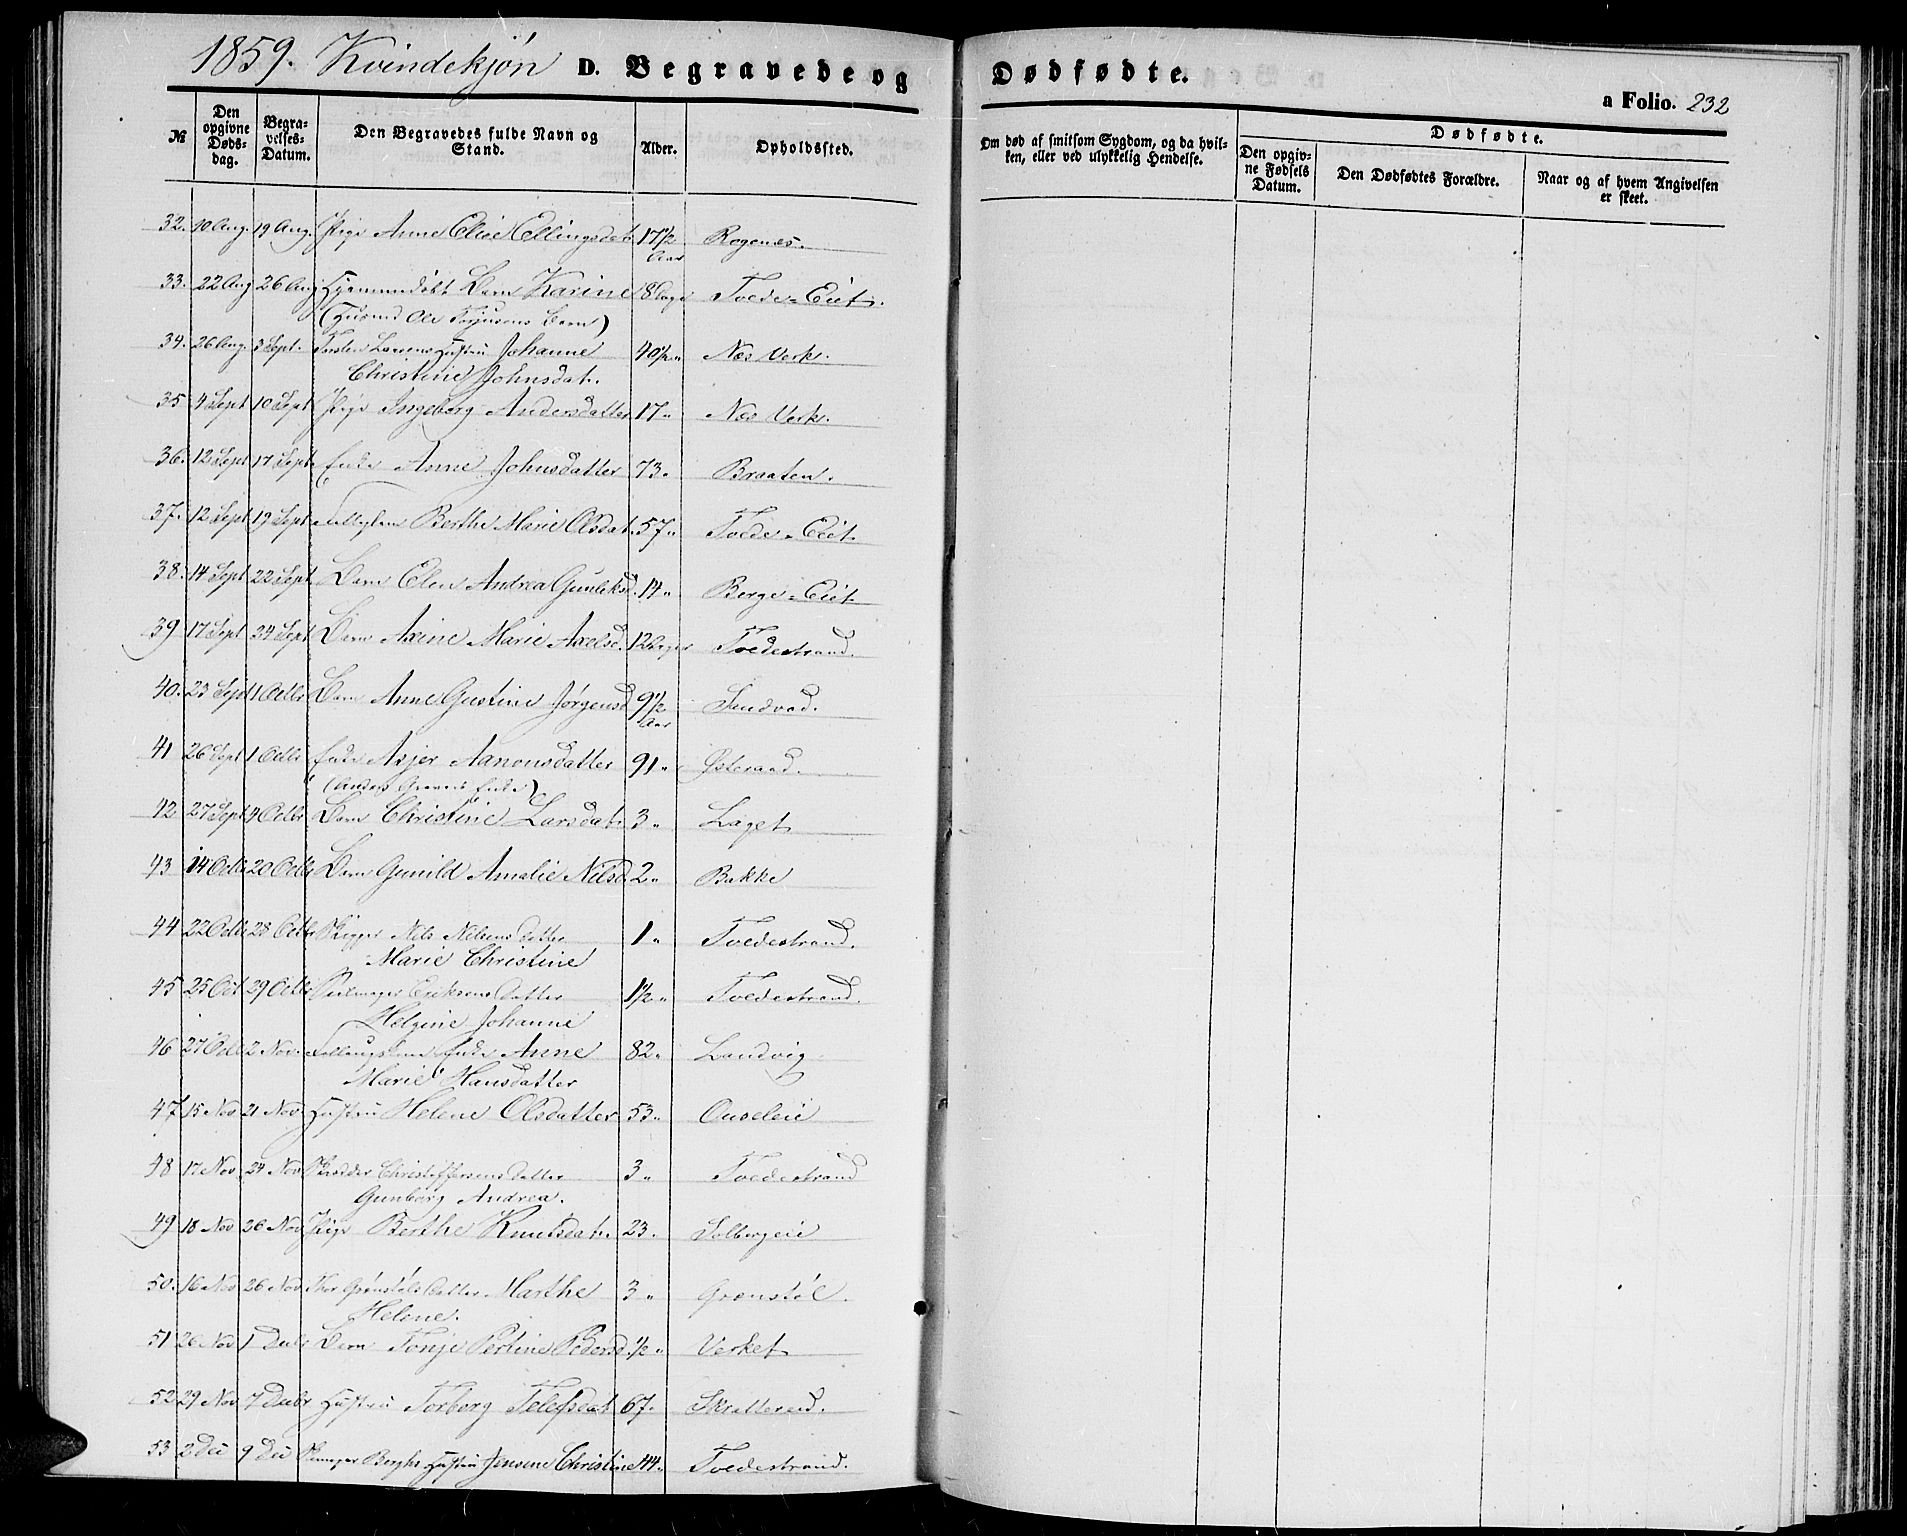 1859. Kvindekjøn D. Begravede og Dødfødte.
a Folio. 232
№ Den opgivne Døds-dag. Begra-velses-Datum. Den Begravedes fulde Navn og Stand. Alder. Opholdssted.
Om død af smitsom Sygdom, og da hvil-ken, eller ved ulykkelig Hendelse. Dødfødte. Den opgiv-ne Fødsels Datum. Den Dødfødtes Forældre. Naar og af hvem Angivelsen er skeet.
32. 10 Aug. 19 Aug. Pige Anne Elise Ellingsdat. 17½ Aar Rogenæs.
33. 22 Aug 26 Aug Hjemmedøbt Barn Karine 8 Dage Tvede-Eiet.
(Husmd Ole Barn)
34. 26 Aug. 3 Sept. Torsten Larsens Hustru Johanne 40½ " Næs Verk.
Christine Johnsdat.
35 4 Sept 10 Sept Pige Ingeborg Andersdatter 17 " Næs Verk.
36. 12 Sept 17 Sept. Enke Anne Johnsdatter 73 " Braaten.
37. 12 Sept 19 Sept Berthe Marie Olsdat. 57 " Tvede-Eiet
38. 14 Sept 22 Sept Barn Elen Andrea Gunleksd. 14 " Berge-Eiet
39 17 Sept 24 Sept Barn Axine Marie Axelsd. 12 Dager Tvedestrand.
40. 23 Sept 1 Octbr Barn Anne Gustine Jørgensd 9½ Aar Sandvad.
41 26 Sept 1 Octbr Enke Asjer Aanonsdatter 91 "
(Anders Enke)
42 27 Sept 4 Octbr Barn Christine Larsdat. 3 " Laget
43 14 Octb 20 Octbr Barn Gunild Amalie Nilsd. 2 " Bakke
44 22 Octb 28 Octbr Rigger Nils Nilsens Datter 1 " Tvedestrand.
Marie Christine
45 25 Oct 29 Octbr Eriksens Datter 1½ " Tvedestrand.
Helgine Johanne
46 27 Octb 2 Nov. Enke Anne 82 " Landvig
Marie Hansdatter
47 15 Nov 21 Nov. Hustru Helene Olsdatter 53 " Ouseleie
48 17 Nov 24 Nov Christoffersens Datter 3 " Tvedestrand
Gunborg Andrea.
49 18 Nov 26 Nov Pige Berthe Knutsdat. 23 " Solbergeie
50. 16 Nov 26 Nov Thor Grønstøls Datter Marthe 3 " Grønstøl.
Helene.
51 26 Nov 1 Decbr Barn Tonje Pertine Pedersd ½ " Verket
52 29 Nov 7 Decbr Hustru Torborg Telefsdat 67 " Skattereid.
53 2 Dec 9 Dec Berghs Hustru Jensine Christine 44 " Tvedestrand.